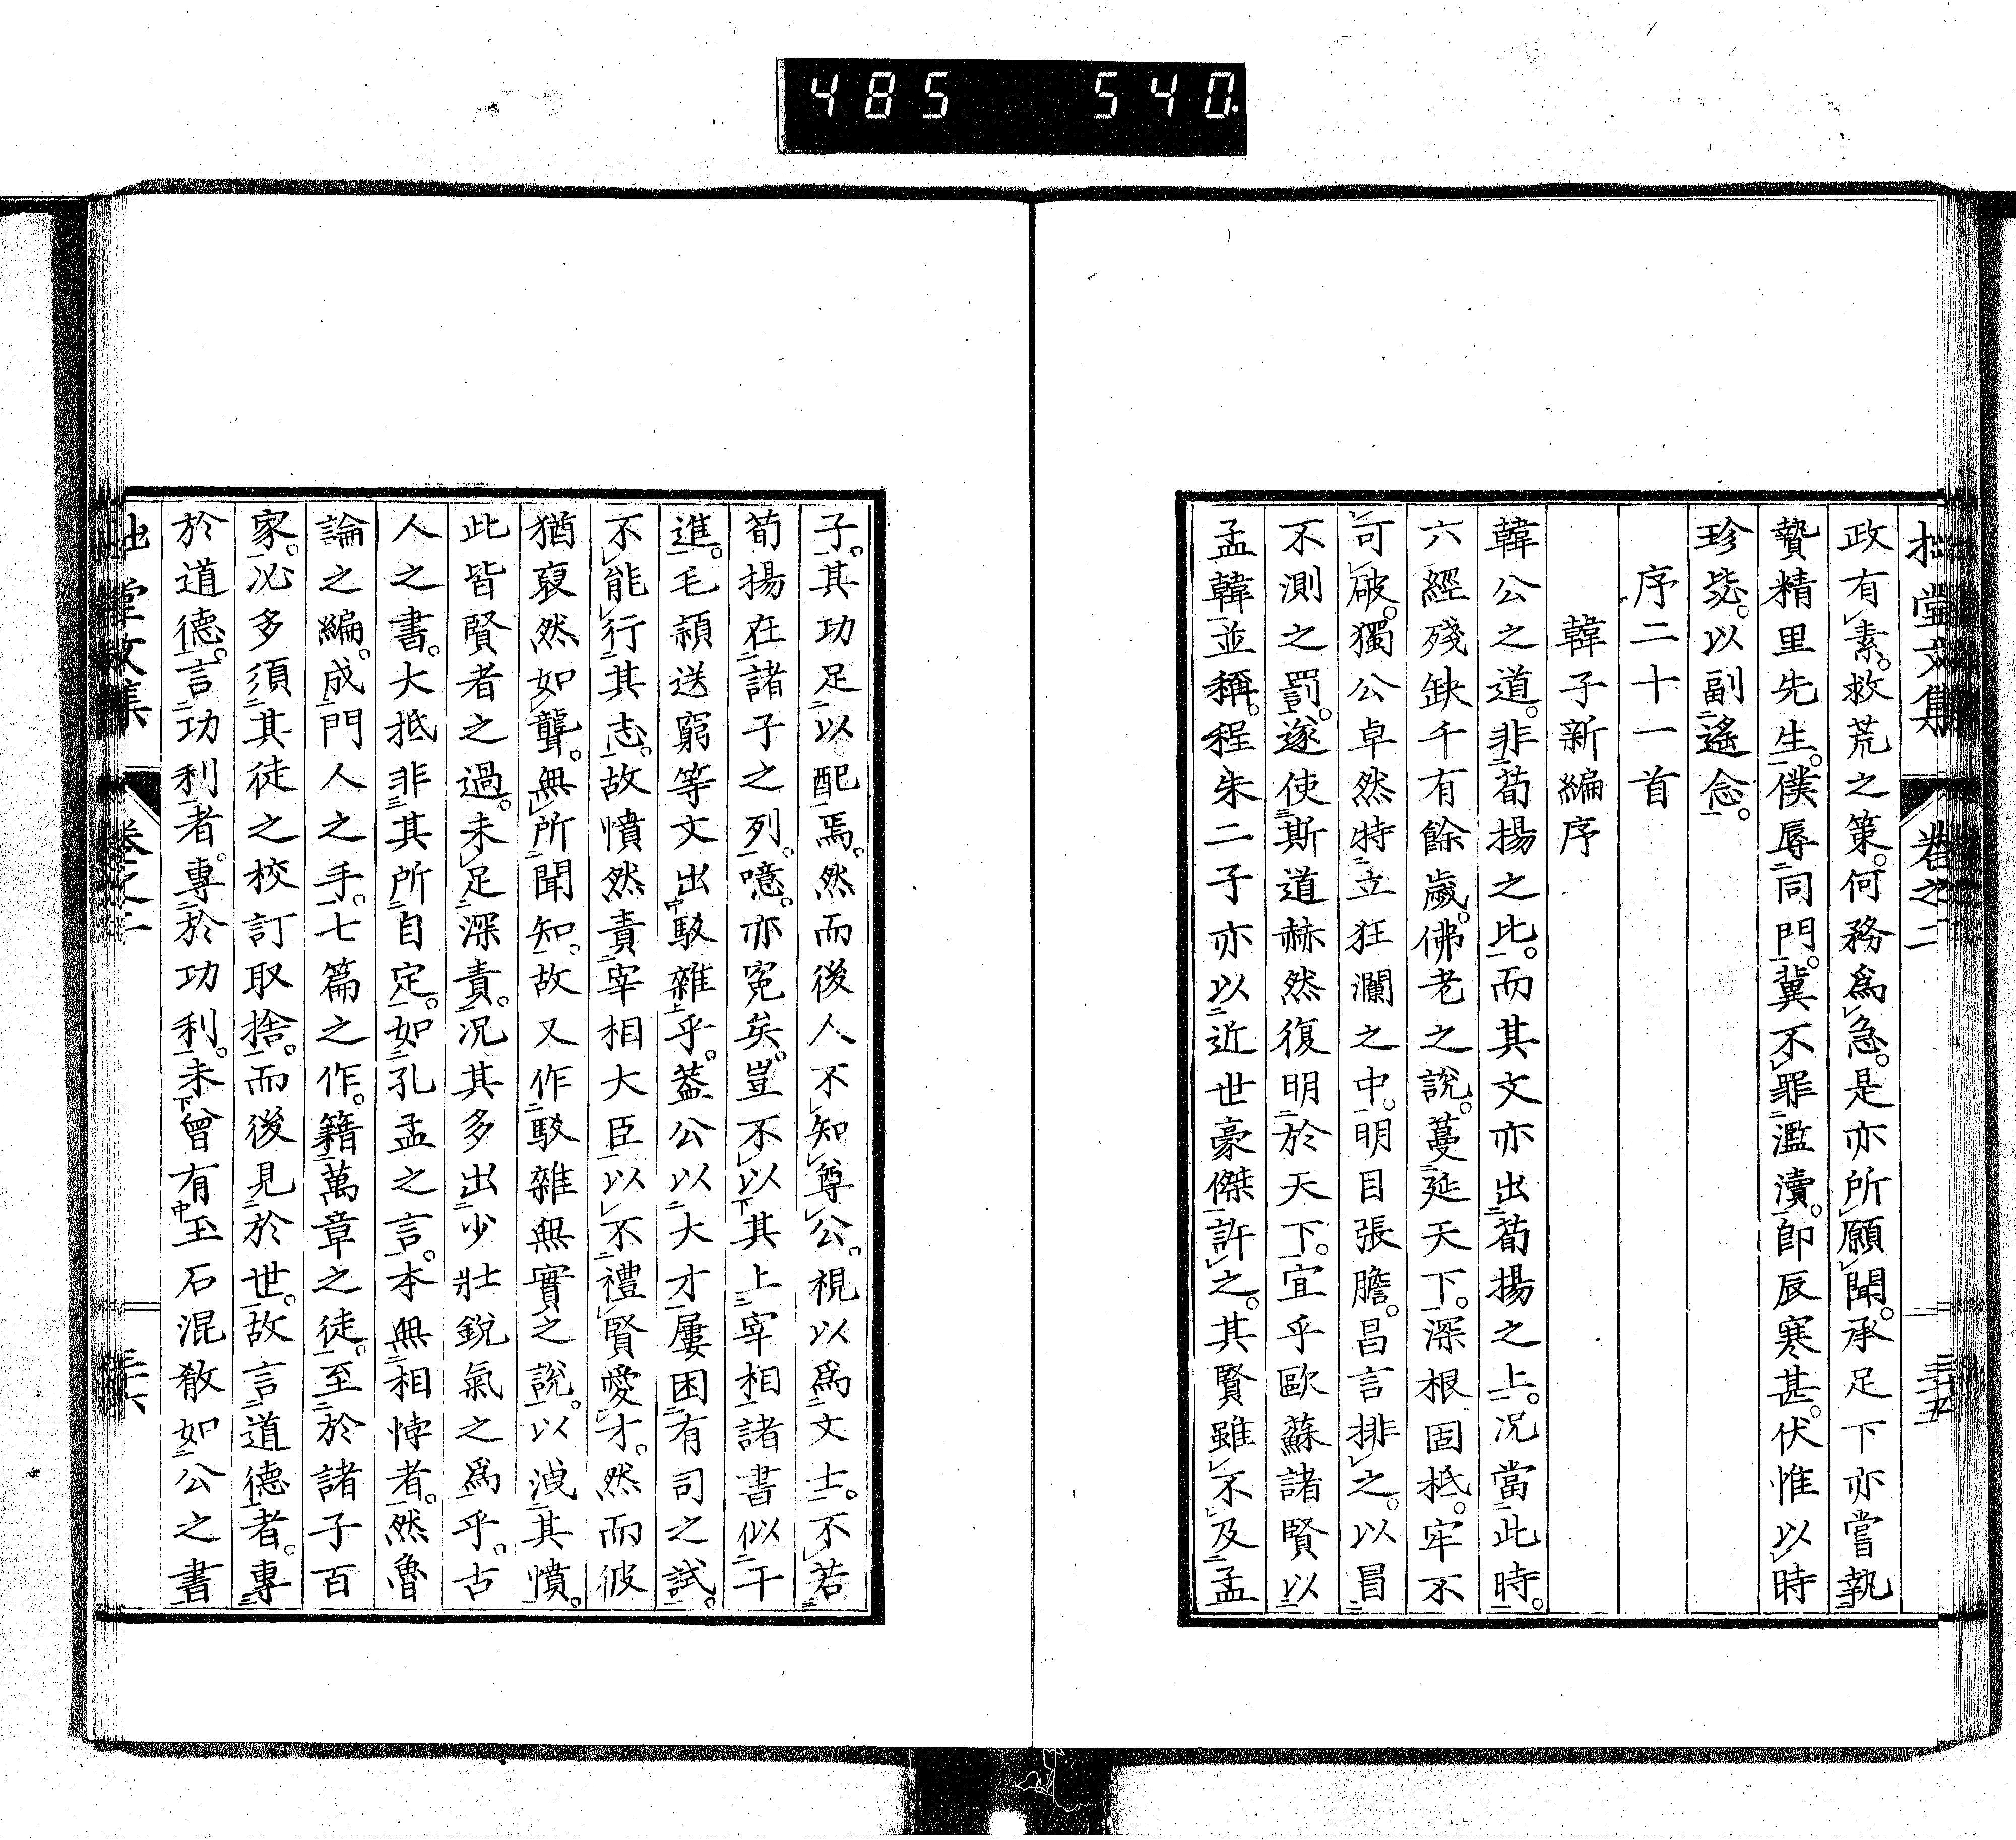 485 540.
拙堂文集 卷之二 三十五
政有素。救荒之策。何務爲急。是亦所願聞。承足下亦嘗執
贄精里先生。僕辱同門。冀不罪濫瀆。卽辰寒甚。伏惟以時
珍毖。以副遙念。
序二十一首
韓子新編序
韓公之道。非荀揚之比。而其文亦出荀揚之上。况當此時。
六經殘缺千有餘歲。佛老之說。蔓延天下。深根固柢。牢不
可破。獨公卓然特立狂瀾之中。明目張膽。昌言排之。以冒
不測之罰。遂使斯道赫然復明於天下。宜乎歐蘇諸賢以
孟韓並稱。程朱二子亦以近世豪傑許之。其賢雖不及孟
子。其功足以配焉。然而後人不知尊公。視以爲文士。不若
荀揚在諸子之列。噫。亦冤矣。豈不以其上宰相諸書似干
進。毛穎送窮等文出駁雜乎。葢公以大才屢困有司之試。
不能行其志。故憤然責宰相大臣以不禮賢愛才。然而彼
猶裒然如聾。無所聞知。故又作駁雜無實之說。以洩其憤。
此皆賢者之過。未足深責。况其多出少壯銳氣之爲乎。古
人之書。大抵非其所自定。如孔孟之言。本無相悖者。然魯
論之編。成門人之手。七篇之作。籍萬章之徒。至於諸子百
家。必多須其徒之校訂取捨。而後見於世。故言道德者。專
於道德。言功利者。專於功利。未曾有玉石混殽如公之書
拙堂文集 卷之二 三十六